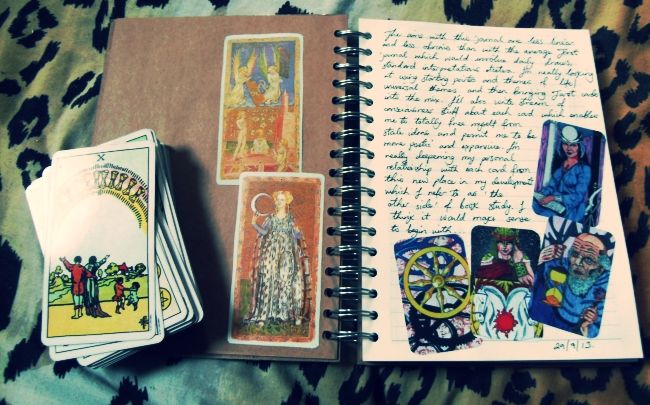 X
The aims with this journal are less linear
and less obvious than with the average Tarot
journal which would involve daily draws,
standard interpretations etcetera. I'm really looking
at using starting points and themes of 'life',
universal themes and then bringing Tarot cards
into the mix. I'll also write stream of
consciousness stuff about each card which enables
me to totally free myself from
stale ideas and permit me to be
more poetic and expansive. I'm
really deepening my personal
relationship with each card from
this new place in my development
which I refer to as 'the
other side' of book study. I
think it would make sense
to begin with...
29/9/13.